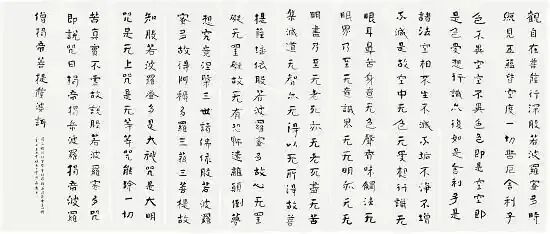 觀自在菩薩行深般若波羅多時
照見五蘊皆空度一切苦厄舍利子
色不異空空不異色色即是空空即
是色受想行識亦復如是舍利子是
諸法空相不生不滅不垢不淨不增
不減是故空中无色无受想行識无
眼耳鼻舌身意无色聲香味觸法无
眼界乃至无意識界无无明亦无无
明盡乃至无老死亦无老死盡无苦
集滅道无智亦无得以无所得故菩
提薩埵依般若波羅蜜多故心无罣
礙无罣礙故无有恐怖遠離顛倒夢
想究竟涅槃三世諸佛依般若波羅
蜜多故得阿耨多羅三藐三菩提故
知般若波羅蜜多是大神咒是大明
咒是无上咒是无等等咒能除一切
苦真實不虛故說般若波羅蜜多咒
即說咒曰揭帝揭帝波羅揭帝波羅
僧揭帝菩提薩婆訶